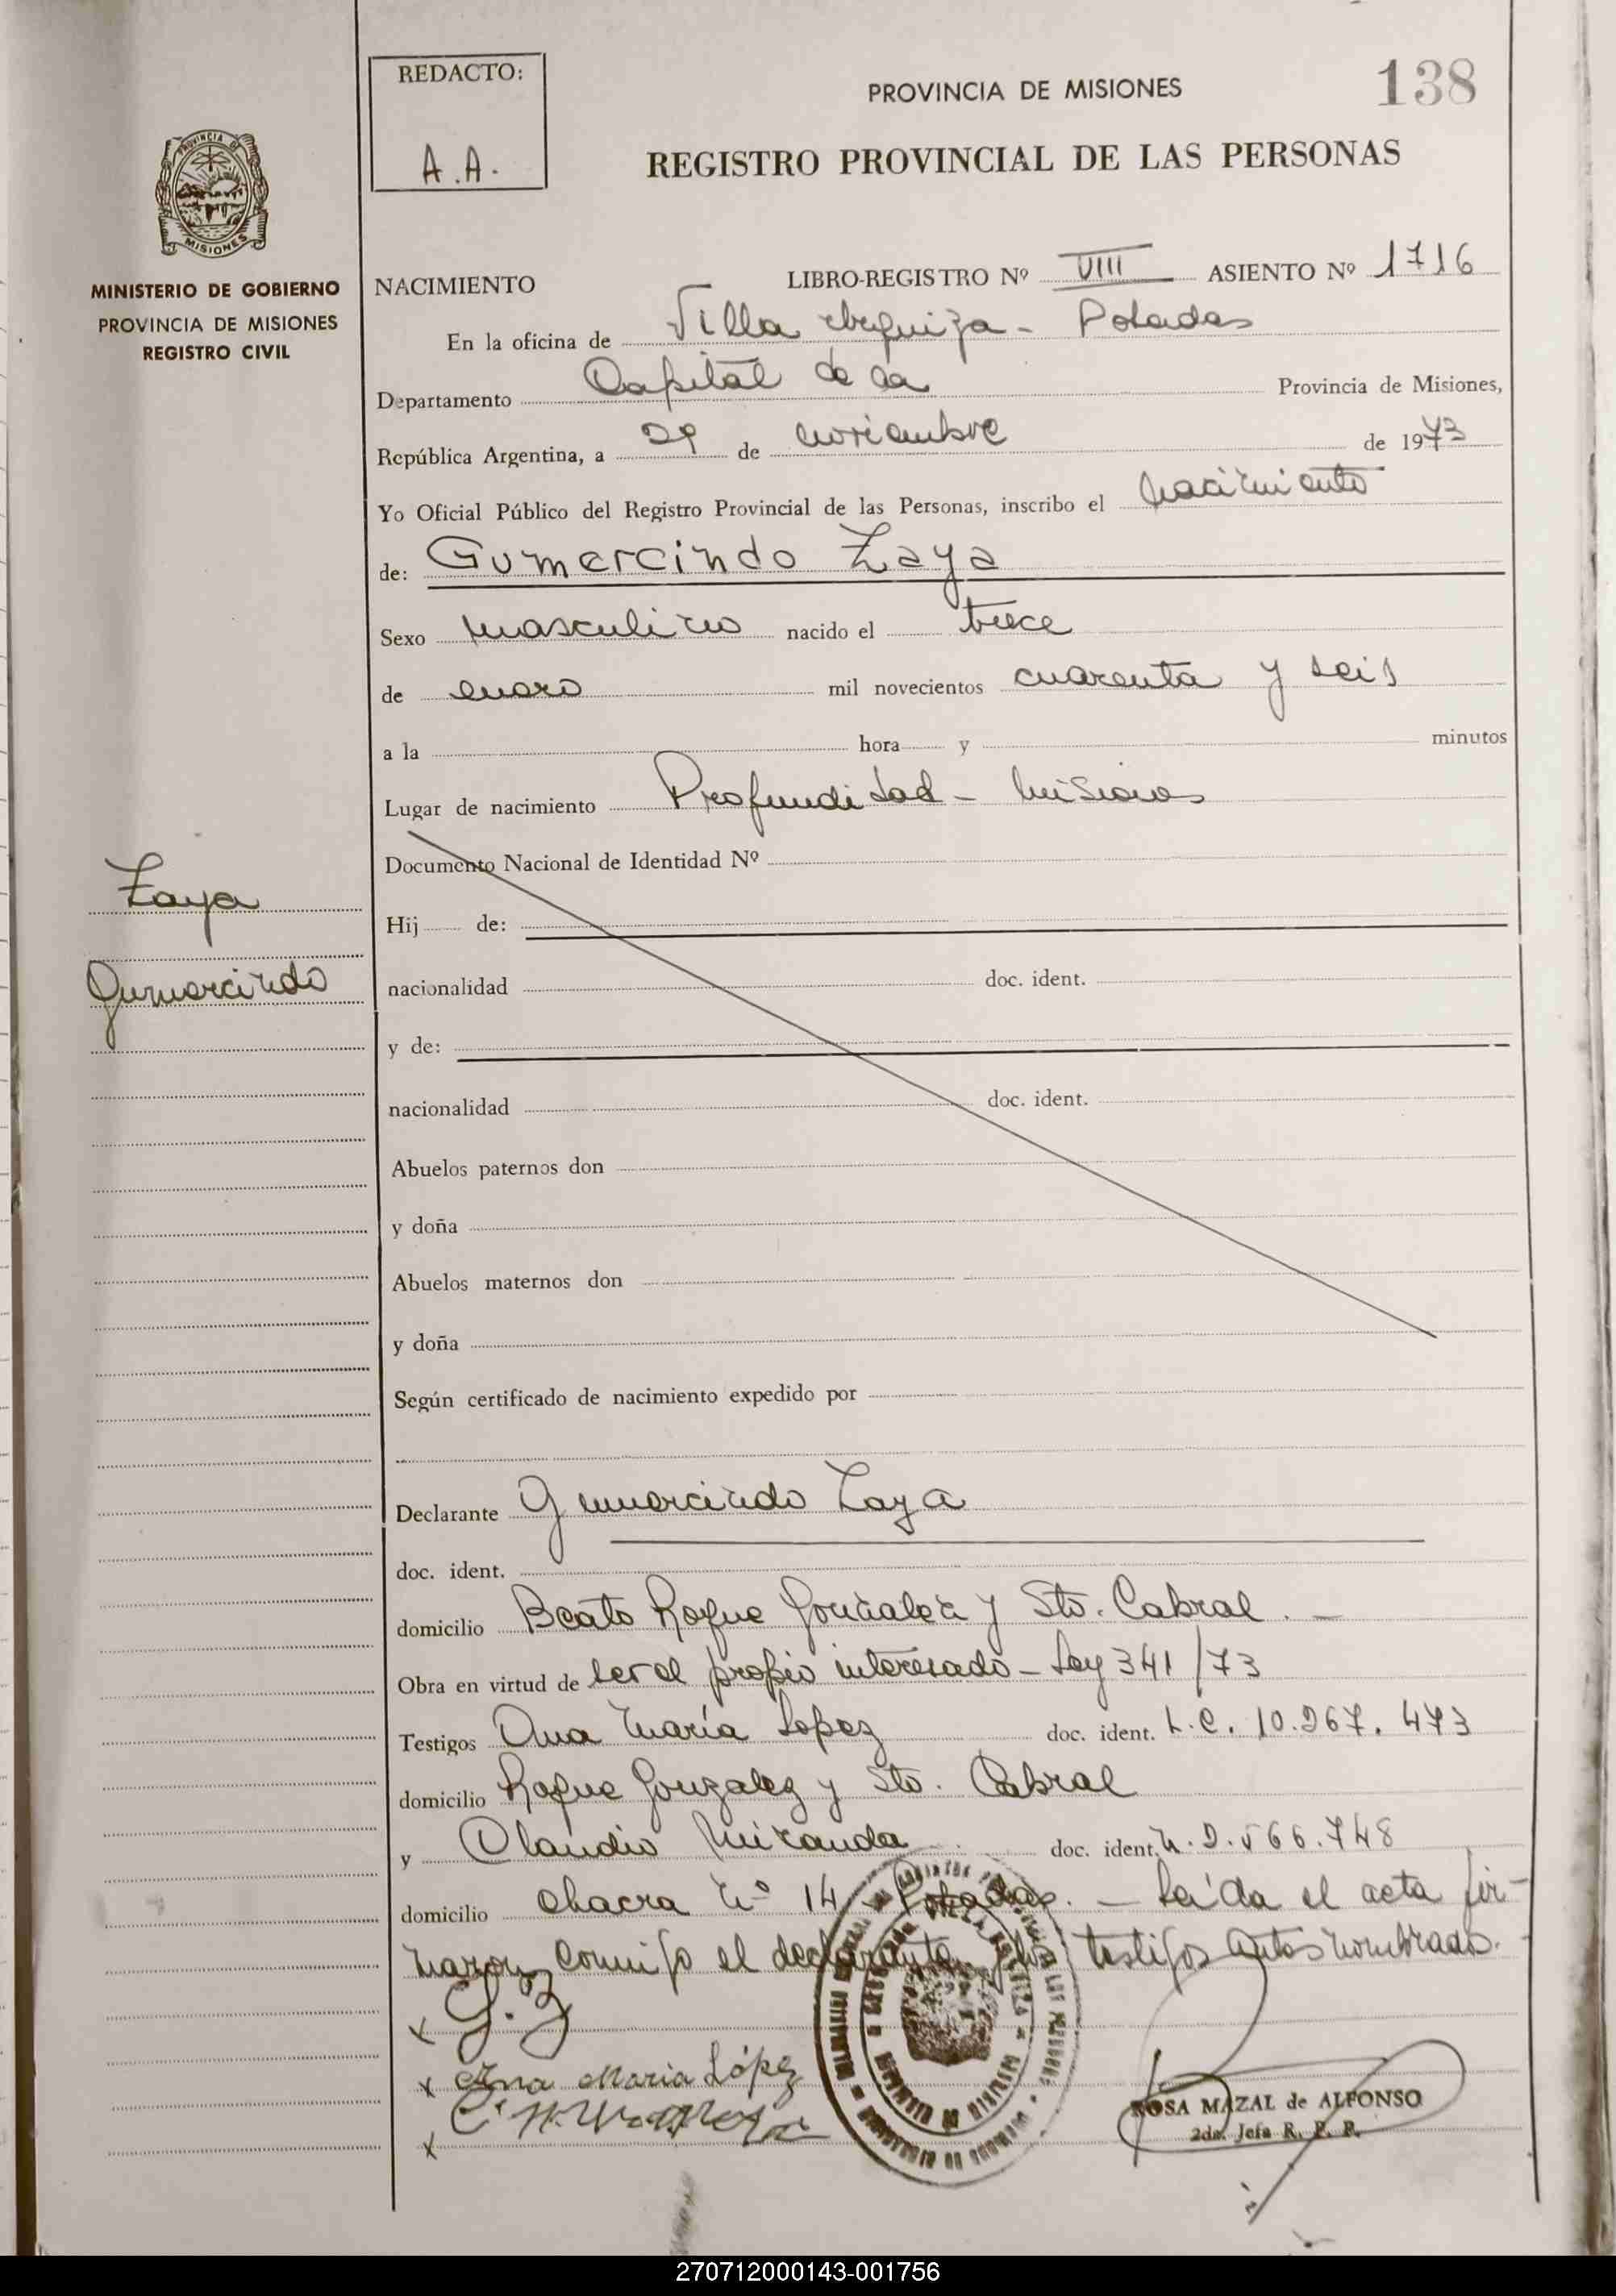 REDACTO:
A.A.
PROVINCIA DE MISIONES
138
REGISTRO PROVINCIAL DE LAS PERSONAS
PROVINCIA DE
MISIONES
MINISTERIO DE GOBIERNO
PROVINCIA DE MISIONES
REGISTRO CIVIL
NACIMIENTO LIBRO-REGISTRO Nº VIII ASIENTO Nº 1716
En la oficina de Villa Urquiza - Posadas
Departamento Capital de la Provincia de Misiones,
República Argentina, a 29 de noviembre de 1973
Yo Oficial Público del Registro Provincial de las Personas, inscribo el nacimiento
de: Gumercindo Zaya
Sexo masculino nacido el trece
de enero mil novecientos cuarenta y seis
a la hora y minutos
Lugar de nacimiento Profundidad - Misiones
Documento Nacional de Identidad Nº
Zaya
Gumercindo
Hij de:
nacionalidad doc. ident.
y de:
nacionalidad doc. ident.
Abuelos paternos don
y doña
Abuelos maternos don
y doña
Según certificado de nacimiento expedido por
Declarante Gumercindo Zaya
doc. ident.
domicilio Beato Roque González y Sto. Cabral. -
Obra en virtud de ser el propio interesado - Ley 341/73
Testigos Ana María Lopez doc. ident. L.C. 10.267.473
domicilio Roque Gonzalez y Sto. Cabral
y Claudio Miranda doc. ident. 566.748
domicilio chacra Nº 14 - Posadas. - Leída el acta fir-
maron conmigo el declarante y los testigos antes nombrados.
x G.Z
x Ana Maria López
x
ROSA MAZAL de ALFONSO
2da. Jefa R. P. P.
270712000143-001756